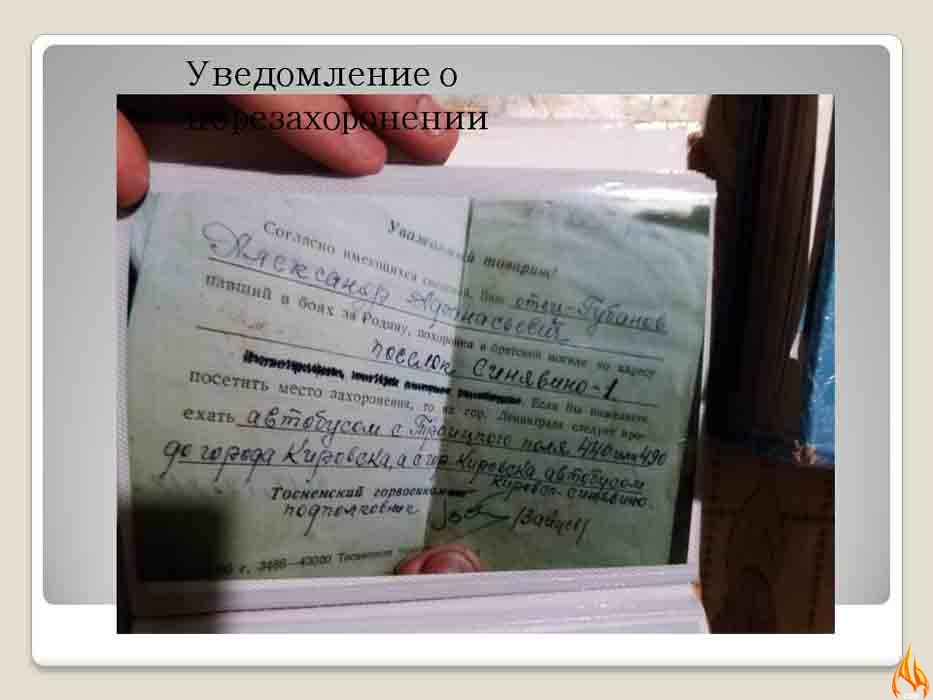 Уведомление о
перезахоронении
Уважаемый товарищ!
Согласно имеющихся сведений, Ваш отец-Губанов
Александр Афанасьевич
павший в боях за Родину, похоронен в братской могиле по адресу
поселок Синявино-1
Если Вы пожелаете
посетить место захоронения, то из гор. Ленинграда следует прое-
ехать автобусом с Троицкого поля 440 или 490
до города Кировска, а с гор Кировска автобусом
Кировск синявино.
Тосненский горвоенком
подполковник /Зайцев/
г. 3486—43000 Тосненская